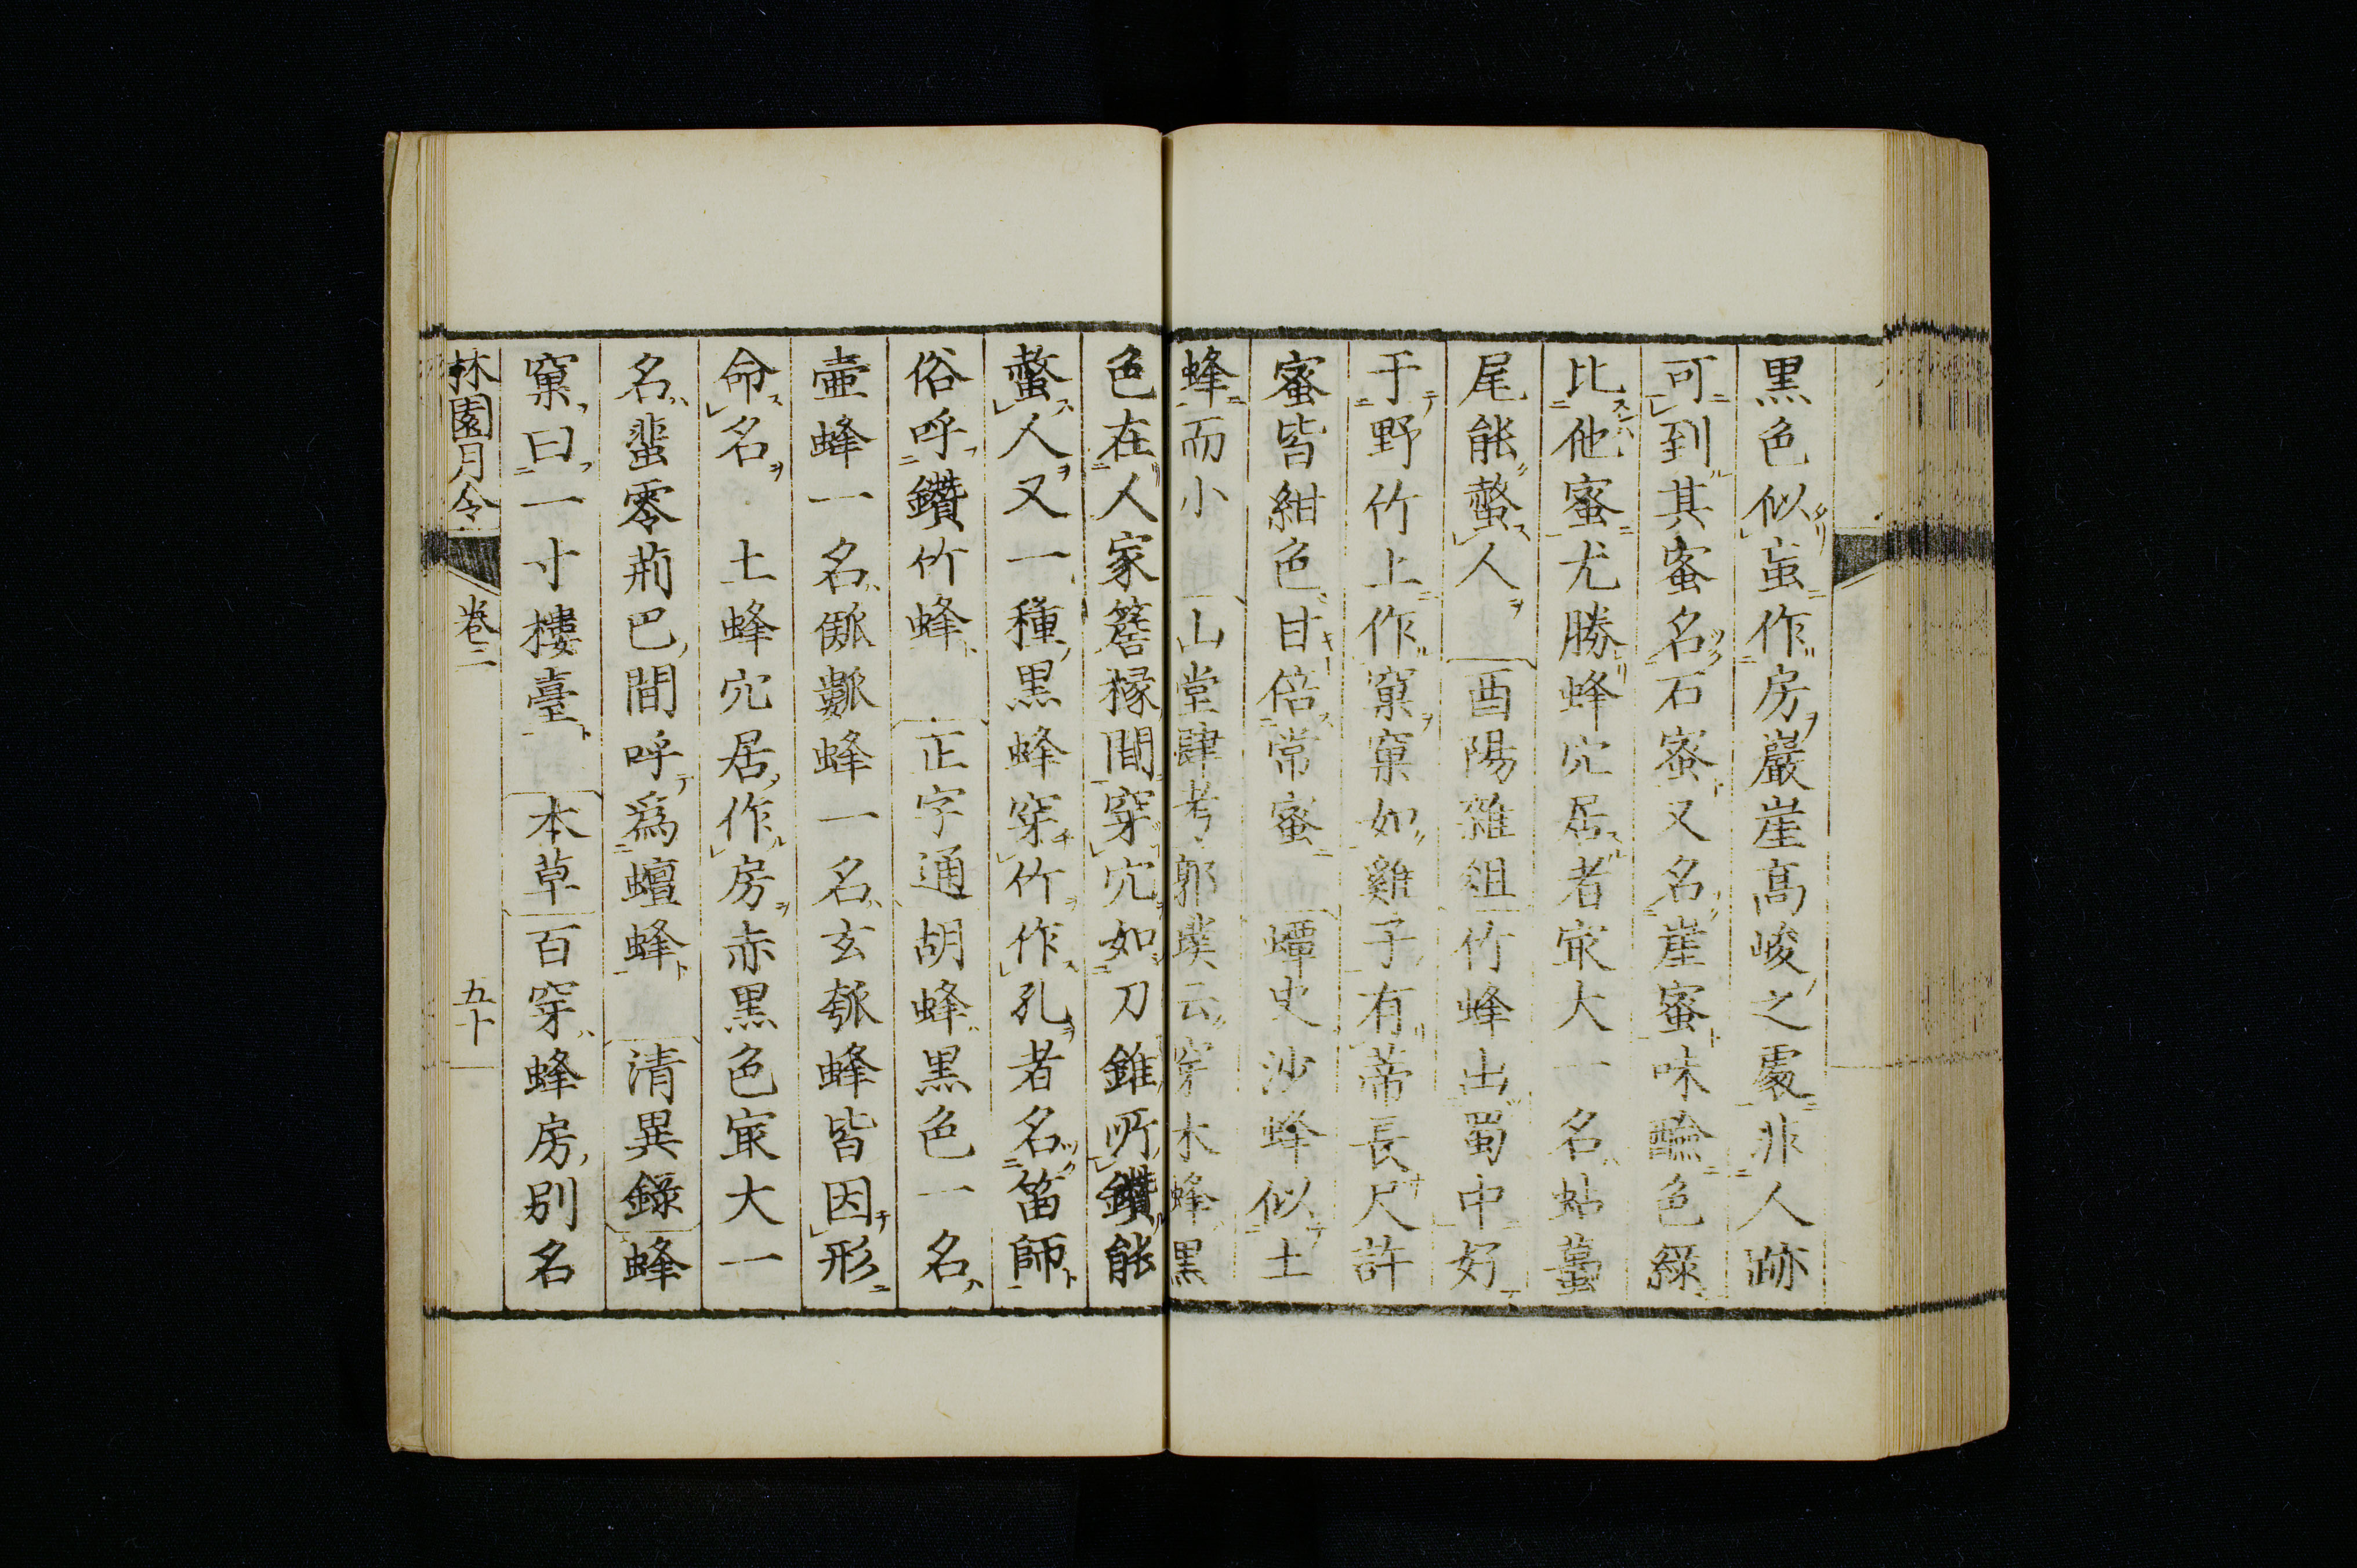 黒色似䖟作房巖崖髙峻之處非人跡
可到其蜜名石蜜又名崖蜜味醶色緑
比他蜜尤勝蜂穴居者㝡大一名蛅䘍
尾能螫人 酉陽雜俎竹蜂出蜀中好
于野竹上作窠窠如雞子有蔕長尺許
蜜皆紺色甘倍常蜜 蟫史沙蜂似土
蜂而小 山堂肆考郭璞云穿木蜂黒
色在人家簷椽間穿穴如刀錐所鑽能
螫人又一種黒蜂穿竹作孔者名笛師
俗呼鑽竹蜂 正字通胡蜂黒色一名
壷蜂一名㼐蜂一名玄瓠蜂皆因形
命名 土蜂穴居作房赤黒色㝡大一
名蜚零荊巴間呼爲蟺蜂 清異錄蜂
窠曰一寸樓臺 本草百穿蜂房別名
林園月令 卷二 五十